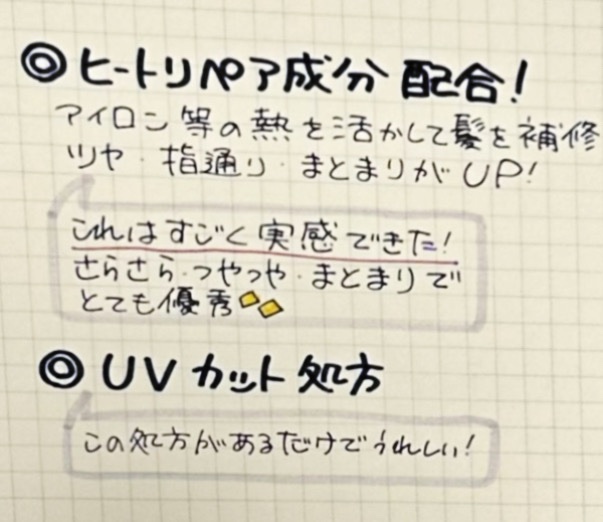 ◎ ヒートリペア成分 配合!
アイロン等の熱を活かして髪を補修
ツヤ・指通り・まとまりがUP!
これはすごく実感できた!
さらさら・つやつや・まとまりで
とても優秀
◎ UVカット処方
この処方があるだけでうれしい!